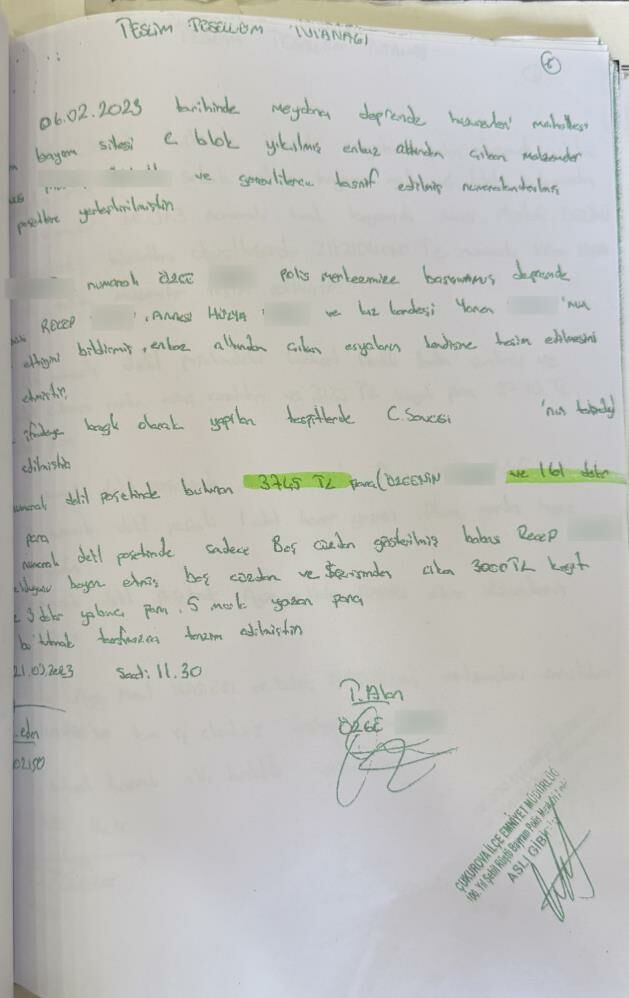 TESLİM TESELLÜM TUTANAĞI
8
06.02.2023 tarihinde meydana deprende huzurevleri mahallesi
bayam sitesi C blok yıkılmış enkaz altından çıkan malzemeler
ve görevlilerce tasnif edilmiş numaralandırılmış
poşetlere yerleştirilmiştir
numaralı ÖZGE polis merkezimize başvurmuş deprende
RECEP , ANNESİ HÜLYA ve kız kardeşi Yaren 'nın
ettiğini bildirmiş, enkaz altından çıkan eşyaların kendisine teslim edilmesini
etmiştir.
ifadeye bağlı olarak yapılan tespitlerde C. Savcısı 'nın
edilmiştir
delil poşetinde bulunan 3745 TL para (ÖZGENİN ve 161 dolar
para
numaralı delil poşetinde sadece Boş cüzdan gösterilmiş babası Recep
olduğunu beyan etmiş boş cüzdan ve içerisinden çıkan 3000 TL kağıt
3 dolar yabancı para, 5 mark yazan para
tutanak tarafımızca tanzim edilmiştir
21.02.2023 Saat: 11.30
T. Alan
ÖZGE
eden
ÇUKUROVA İLÇE EMNİYET MÜDÜRLÜĞÜ
100. Yıl Şehit Rüştü Bayram Polis Merkezi Amirliği
ASLI GİBİ